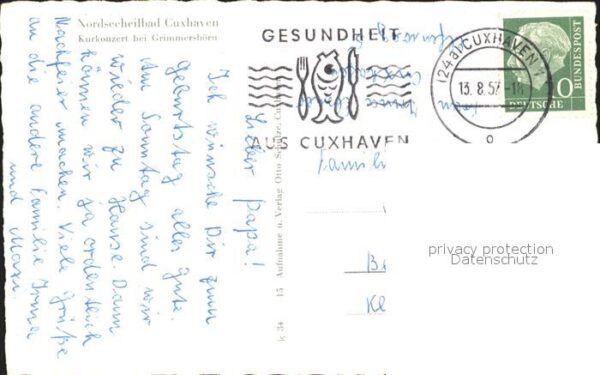 Nordseeheilbad Cuxhaven
Kurkonzert bei Grimmershörn
Lieber Papa!
Ich wünsche Dir zum
Geburtstag alles Gute.
Am Sonntag sind wir
wieder zu Hause. Dann
können wir ja ordentlich
Nachfeier machen. Viele Grüße
an die andere Familie Irma
und Mam.
k 34 15 Aufnahme u. Verlag Otto
GESUNDHEIT
AUS CUXHAVEN
(24a) CUXHAVEN 1
13.8.57-18
DEUTSCHE
BUNDESPOST
Famili
privacy protection
Datenschutz